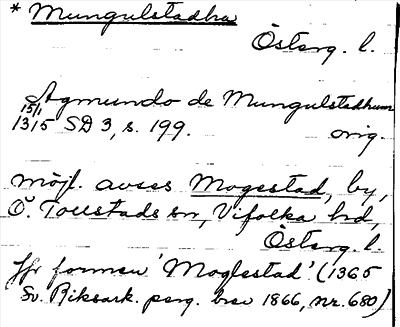 * Mungulstadha
Österg. l.
Agmundo de Mungulstadhum
15/1
1315 SD 3, s. 199. orig.
möjl. avses Mogestad, by,
Ö. Tollstads sn, Vifolka hd,
Österg. l.
Jfr formen 'Moglestad' (1365
Sv. Riksark. perg. brev 1866, nr. 680)